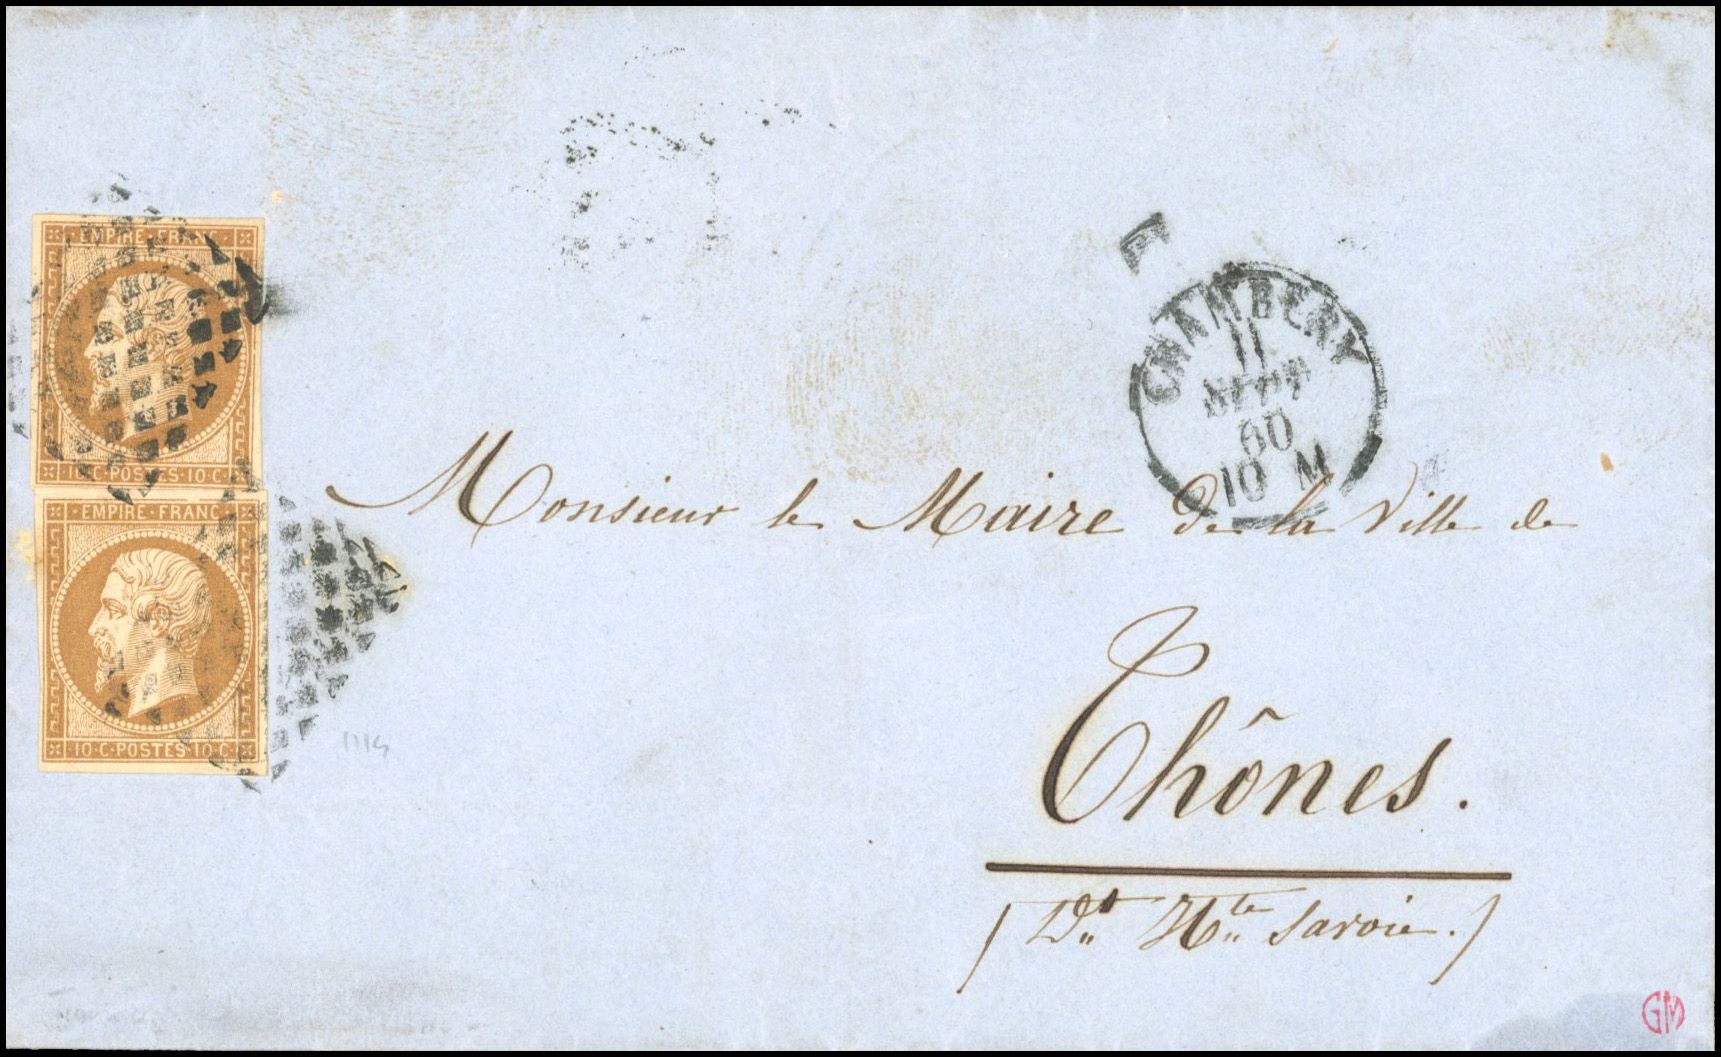 EMPIRE·FRANC·
10·C·POSTES·10·C·
EMPIRE·FRANC
10·C·POSTES·10·C·
CHAMBERY
11
SEPT
60
10 M
Monsieur le Maire de la Ville de
Thônes.
(Dt Hte Savoie.)
GM